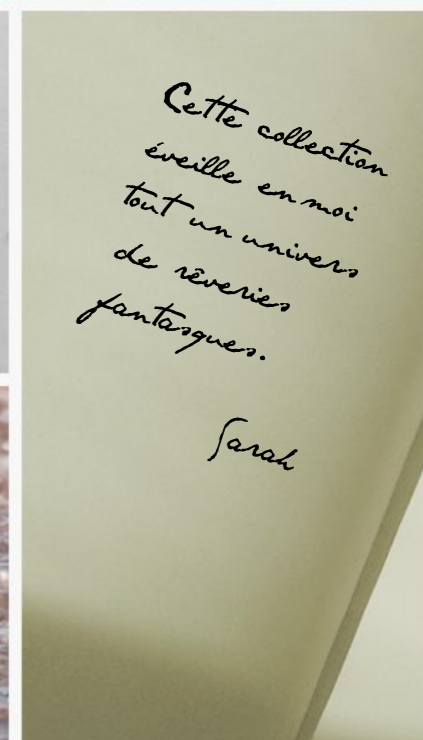 Cette collection
éveille en moi
tout un univers
de rêveries
fantasques.
Sarah